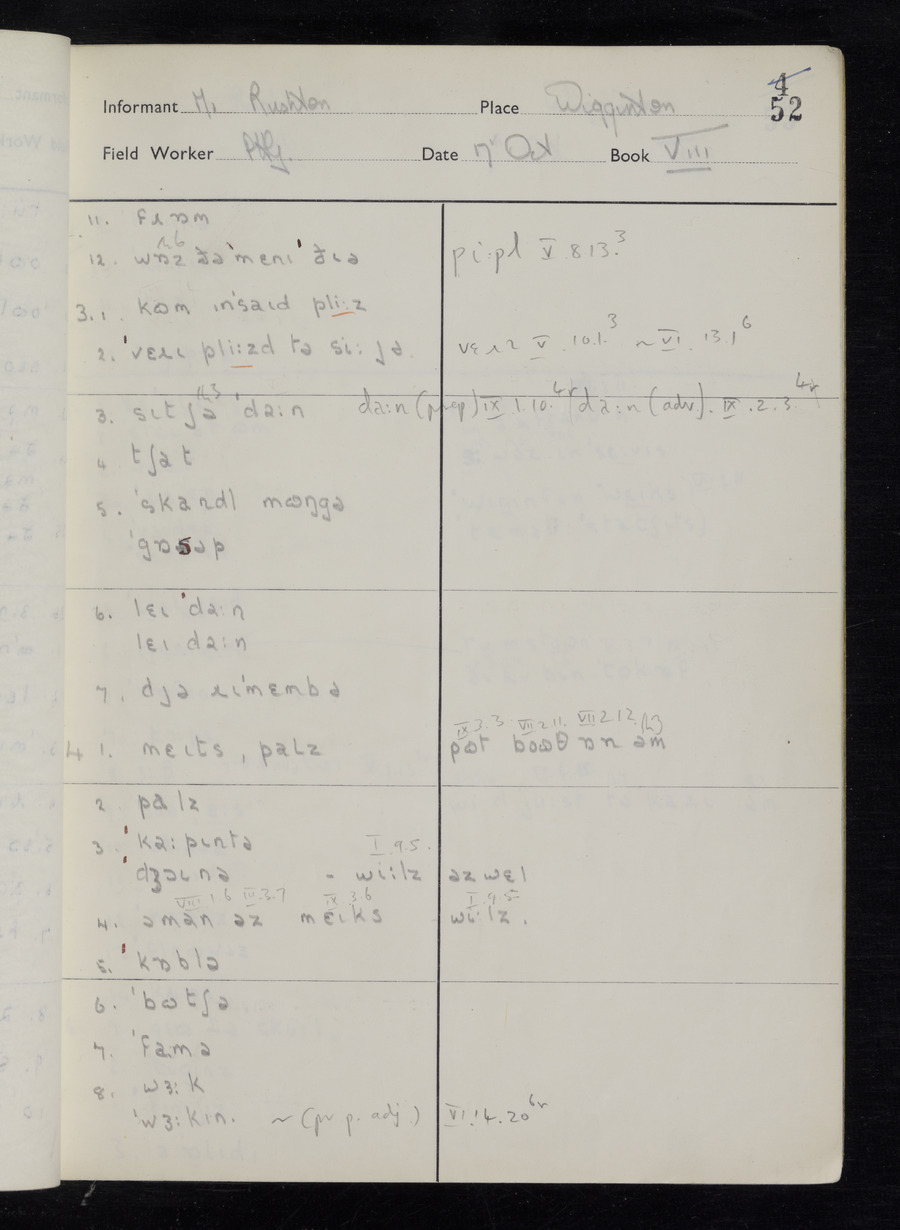 4
52
Informant Mr Rushton Place Wigginton
Field Worker Date 17 Oct Book VIII
11. fɹɒm
12. wɒz ðə'menɪ' ðɪə pi:pl V.8.13.³
3.1. kɷm ɪn'saɪd pli:z
2. 'vɛɹɪ pli:zd tə si: jə vɛɹɪ V.10.1.³ ~ VI.13.1⁶
3. sɪt jə 'da:n da:n (prep) IX.1.10.⁴ʳ / da:n (adv). IX.2.3.⁴ʳ
4 tʃat
5. 'skandl mɷŋgə
'gɒsəp
6. lɛɪ 'da:n
lɛɪ da:n
7. djə ɹɪ'mɛmbə
IX3.3 VII 2 11. VII 2 12
4 1. meɪts, palz pɷt boɷθ ɒn əm
2 palz
3 'ka:pɪntə I.9.5.
dʒɔɪnə - wi:lz əz wɛl
VIII 1 6 III.3.7 IX 3 6 I.9.5
4. əman əz meɪks wi:lz.
5. 'kɒblə
6. 'bɷtʃə
7. 'fa:mə
8. wɜ:k
'wɜ:kɪn. ~ (pr p. adj.) VI.14.20⁶ʳ